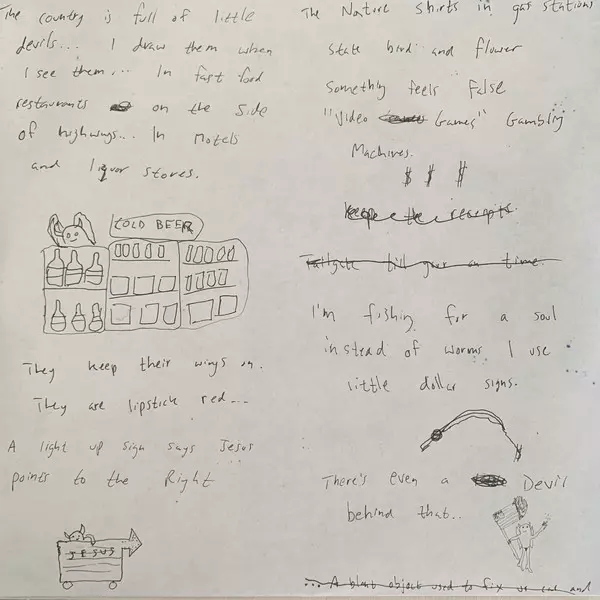 The country is full of little
devils... I draw them when
I see them... In fast food
restaurants on the side
of highways... In Motels
and liquor stores.
COLD BEER
They keep their wings on.
They are lipstick red...
A light up sign says Jesus
points to the Right
JESUS
The Nature shirts in gas stations
state bird and flower
something feels False
"Video Games" Gambling
Machines.
$ $ $
keep the receipts.
Tailgate till your on time.
I'm fishing for a soul
instead of worms I use
little dollar signs.
There's even a Devil
behind that..
... A blunt object used to fix us and